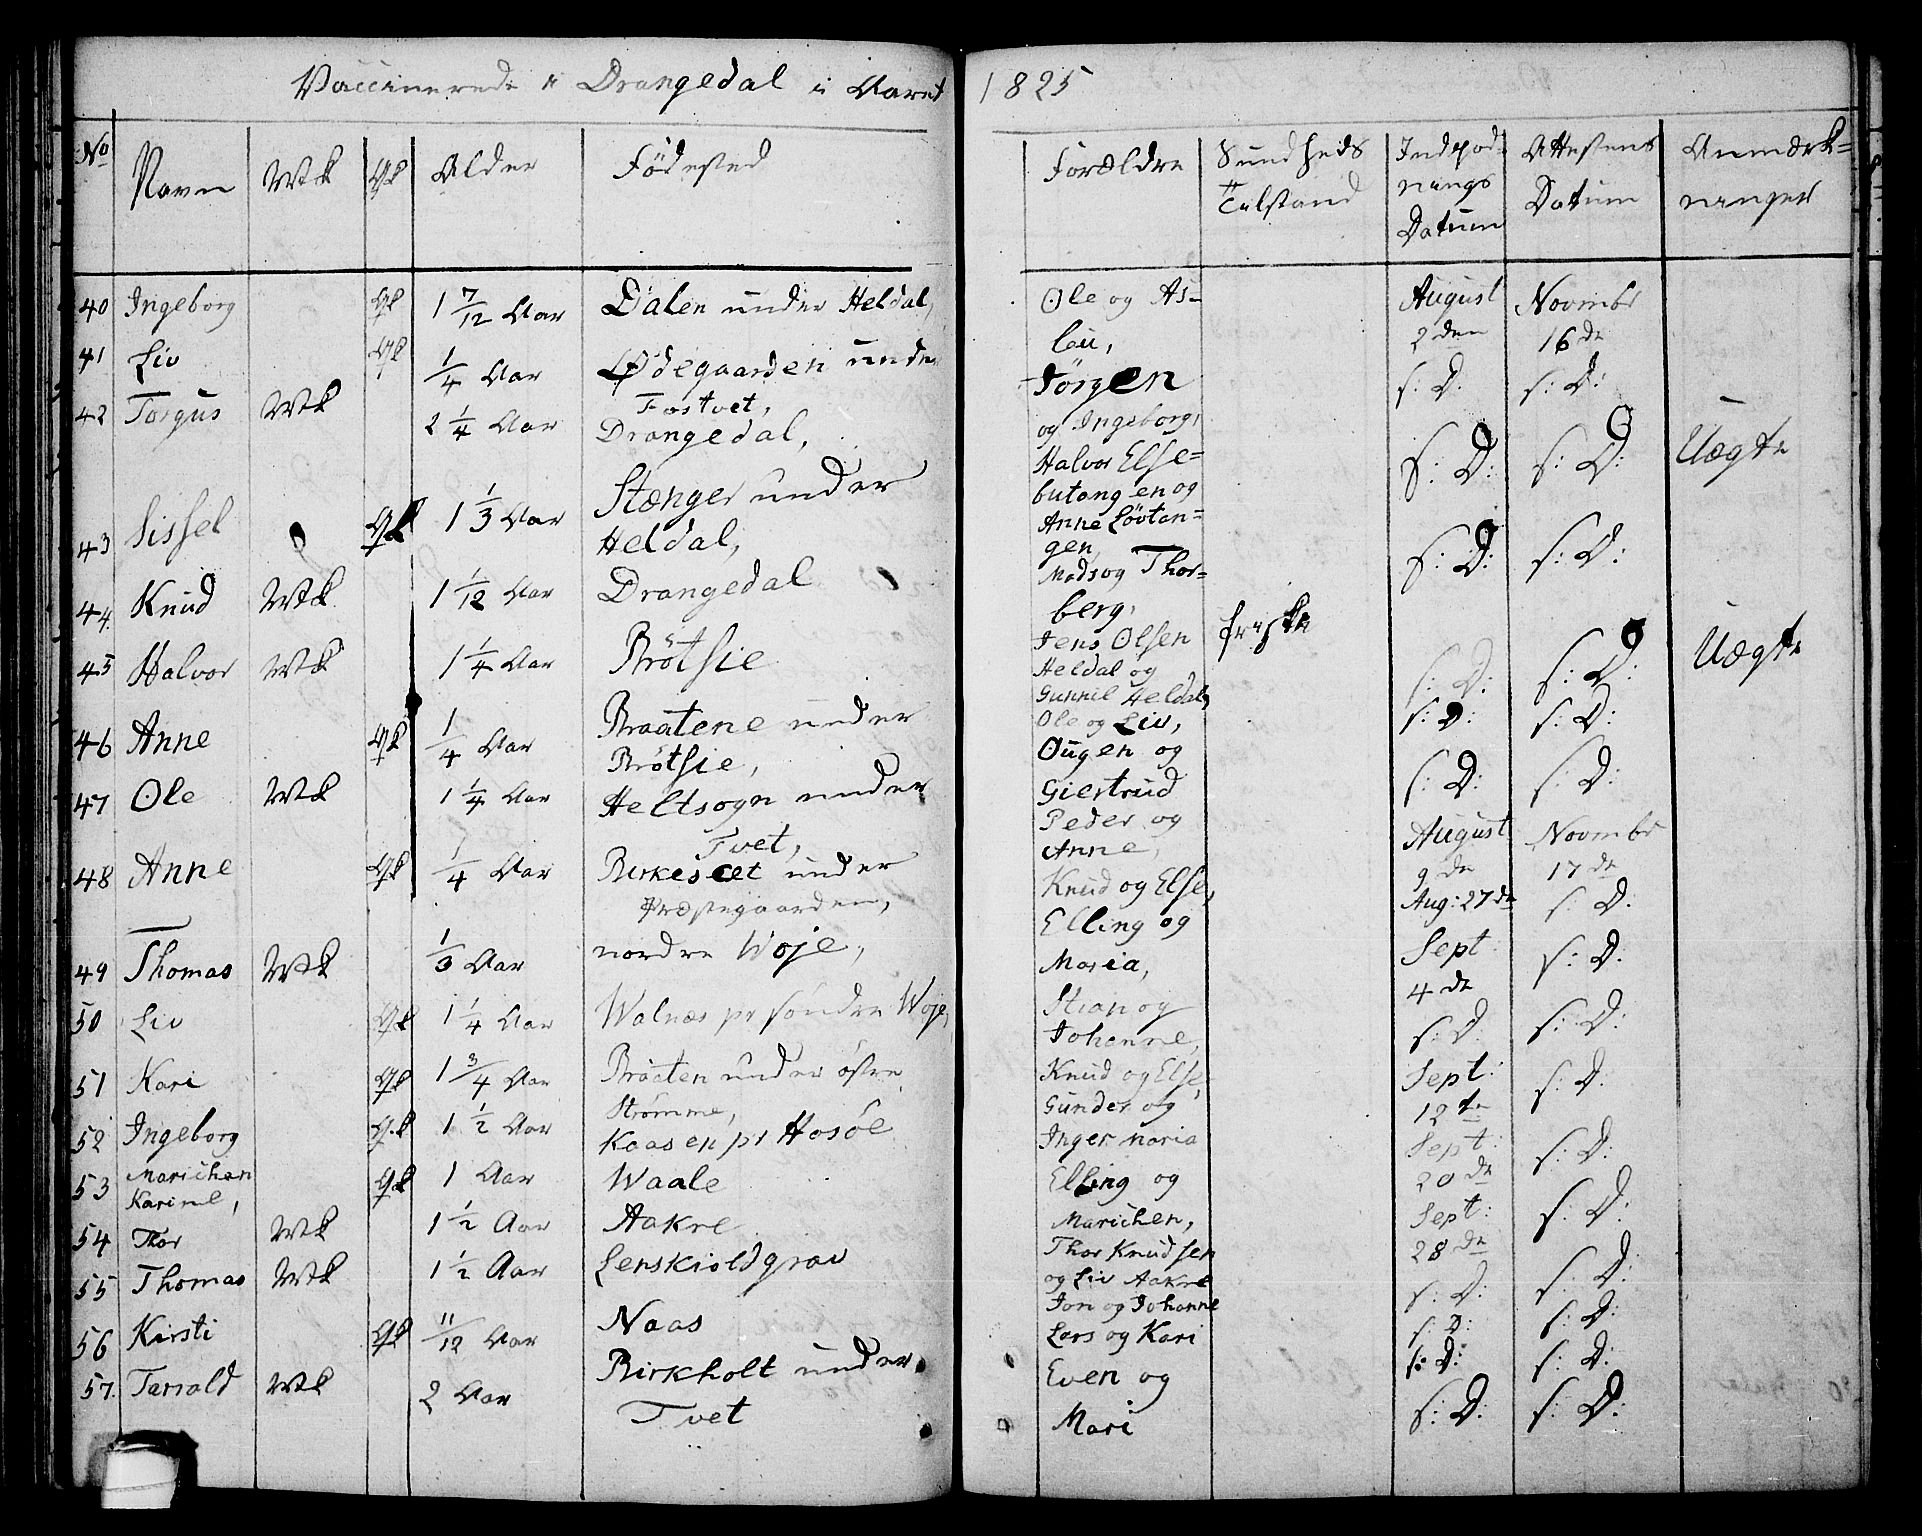 Vaccinerede i Drangedal i Aaret 1825
No Navn Mk Qk Alder Fødested
Forældre Sundheds Tilstand Indpodnings Datum Attestens Datum Anmærkninger
40 Ingeborg Qk 1 7/12 Aar Dalen under Heldal,
41 Liv Qk 1/4 Aar Ødegaarden under
Tostvet,
42 Torgus Mk 2 1/4 Aar Drangedal,
43 Sissel Qk 1 1/3 Aar Stænger under
Heldal,
44. Knud Mk 1 1/12 Aar Drangedal
45 Halvor Mk 1 1/4 Aar Brötsie
46 Anne Qk 1/4 Aar Braatene under
Brötsie,
47 Ole Mk 1 1/4 Aar Heltsogn under
Tvet,
48 Anne Qk 1/4 Aar under
Præstegaarden,
49 Thomas Mk 1/3 Aar nordre Woje,
50 Liv Qk 1 1/4 Aar Walnæs pr søndre Woje,
51 Kari Qk 1 3/4 Aar Braaten under østre
Strømme,
52 Ingeborg Qk 1 1/2 Aar Kaasen pr Hosöe
53 Marichen Qk 1 Aar Waale
Karine,
54 Thor Mk 1 1/2 Aar Aakre
55 Thomas Mk 1 1/2 Aar Lenskioldgrav
56 Kirsti Qk 11/12 Aar Naas
57. Tarrald Mk 2 Aar Birkholt under
Tvet
Ole og As- August Novmbr
lou, 2den 16de
Jørgen s. D. s: D:
og Ingeborg,
Halvor Else= s: D: s: D: Uægte
butangen og
Anne Løvtan=
gen,
Mads og Thor= s: D: s: D:
berg,
Jens Olsen friske
Heldal og s: D: s: D: Uægte
Gunnil Heldal,
Ole og Liv, s: D: s: D:
Ougen og
Giertrud s: D: s: D:
Peder og August Novmbr
Anne, 9de 17de
Knud og Else, Aug: 27de s: D.
Elling og Sept
Maria, 4de s: D.
Stian og
Johanne, s: D s: D:
Knud og Else, Sept: s: D.
Gunder og 12te
Inger maria Sept: s: D:
Elling og 20de
Marichen, Sept: s: D:
Thor Knudsen 28de
og Liv Aakre s: D. s: D:
Jon og Johanne s: D: s: D:
Lars og Kari s: D: s: D:
Even og s: D: s: D:
Mari